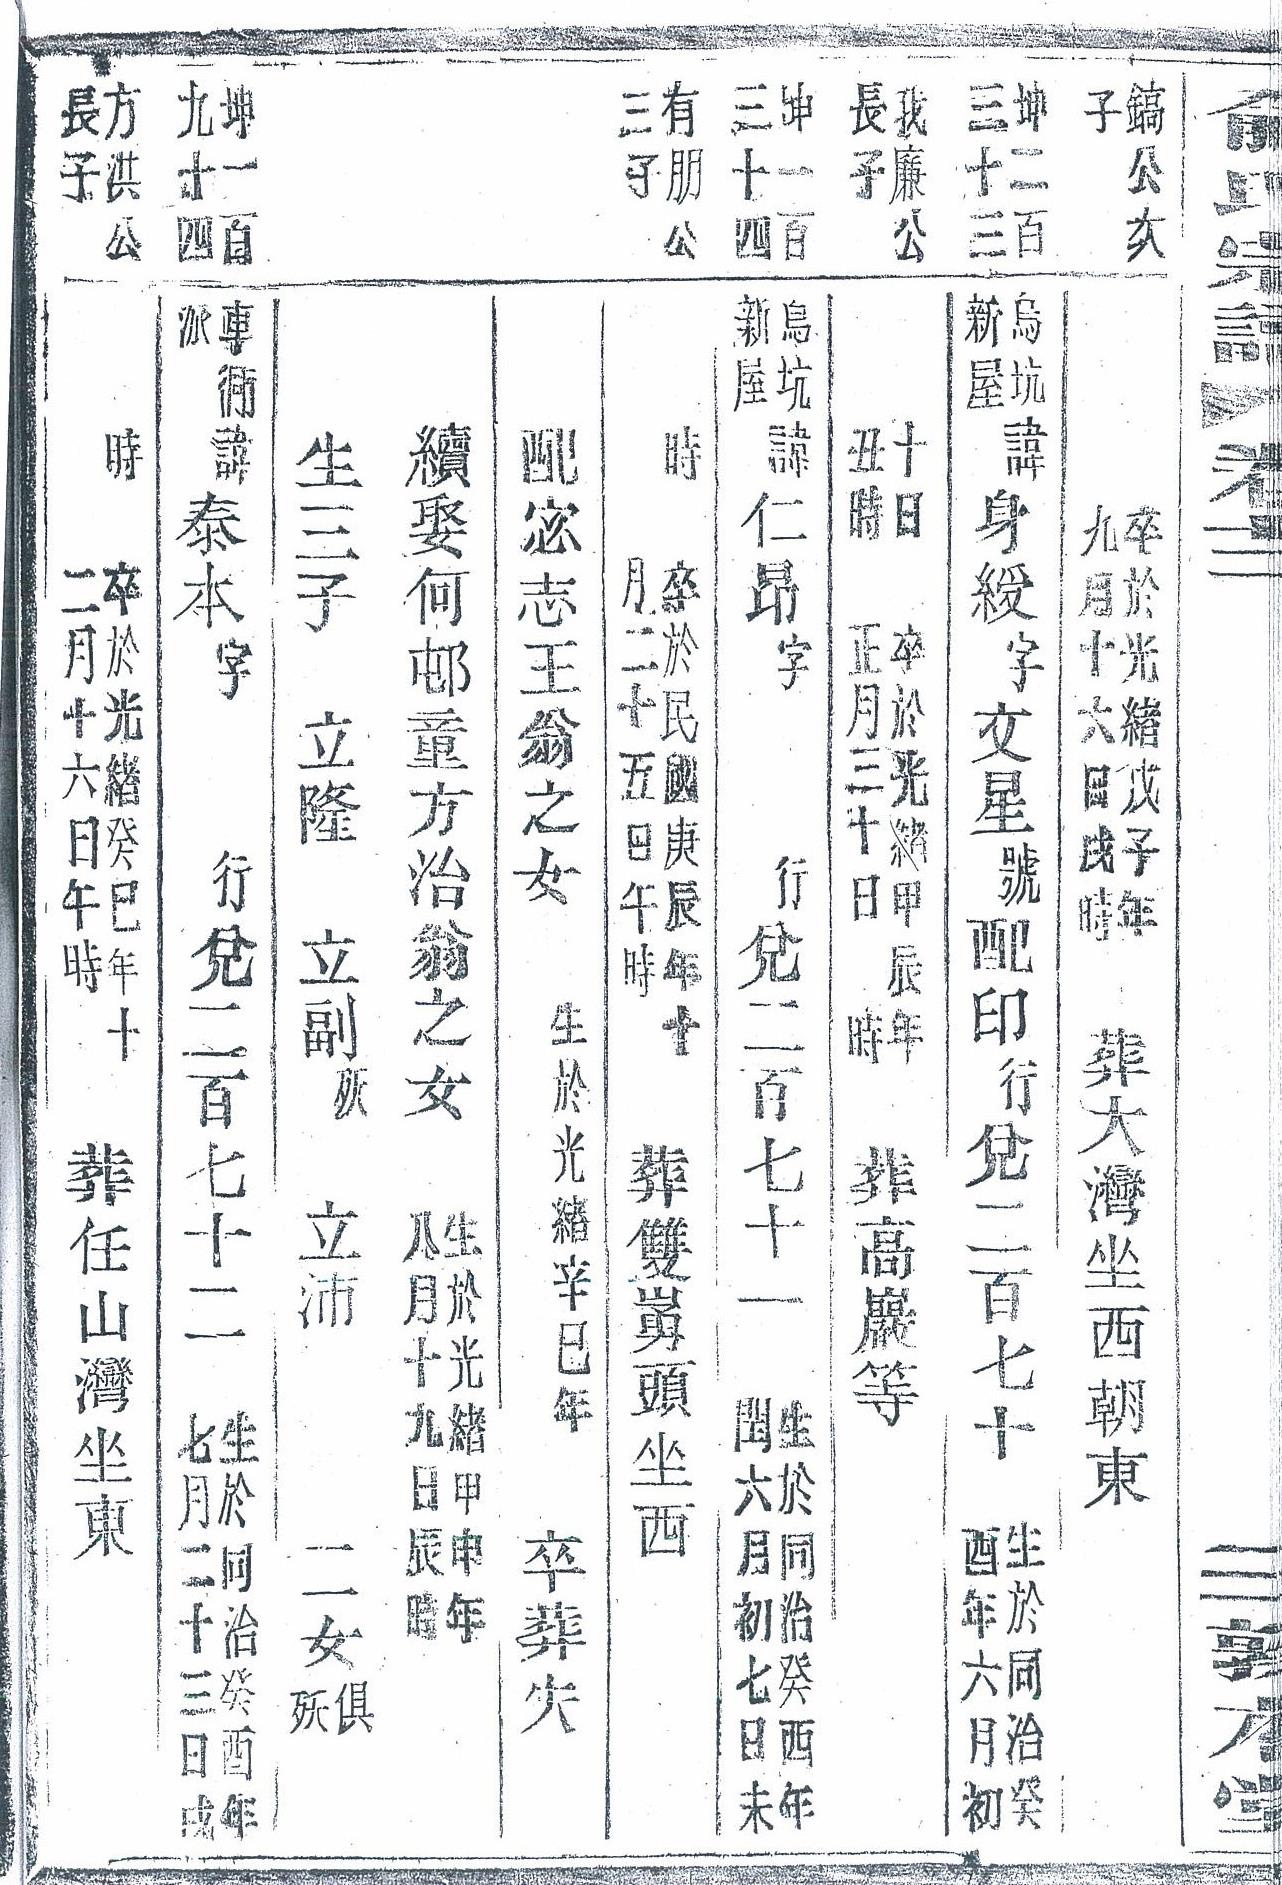 俞氏宗譜 卷二 三 敦本堂
鎬公次
子
卒於光緒戊子年
九月十六日戌時
葬大灣坐西朝東
坤二百
三十三
烏坑
新屋
諱身綬字文星號配印行兌二百七十
生於同治癸
酉年六月初
我廉公
長子
十日
丑時
卒於光緒甲辰年
正月三十日 時
葬高巖等
坤一百
三十四
烏坑
新屋
諱仁昂字 行兌二百七十一
生於同治癸酉年
閏六月初七日未
有朋公
三子
時
卒於民國庚辰年十
月二十五日午時
葬雙嵭頭坐西
配宓志王翁之女
生於光緒辛巳年
卒葬失
續娶何邨童方治翁之女
生於光緒甲申年
八月十九日辰時
生三子 立隆 立副殀 立沛 二女俱
殀
坤一百
九十四
車衕
派
諱泰本字 行兌二百七十二
生於同治癸酉年
七月二十三日戌
方洪公
長子
時
卒於光緒癸巳年十
二月十六日午時
葬任山灣坐東